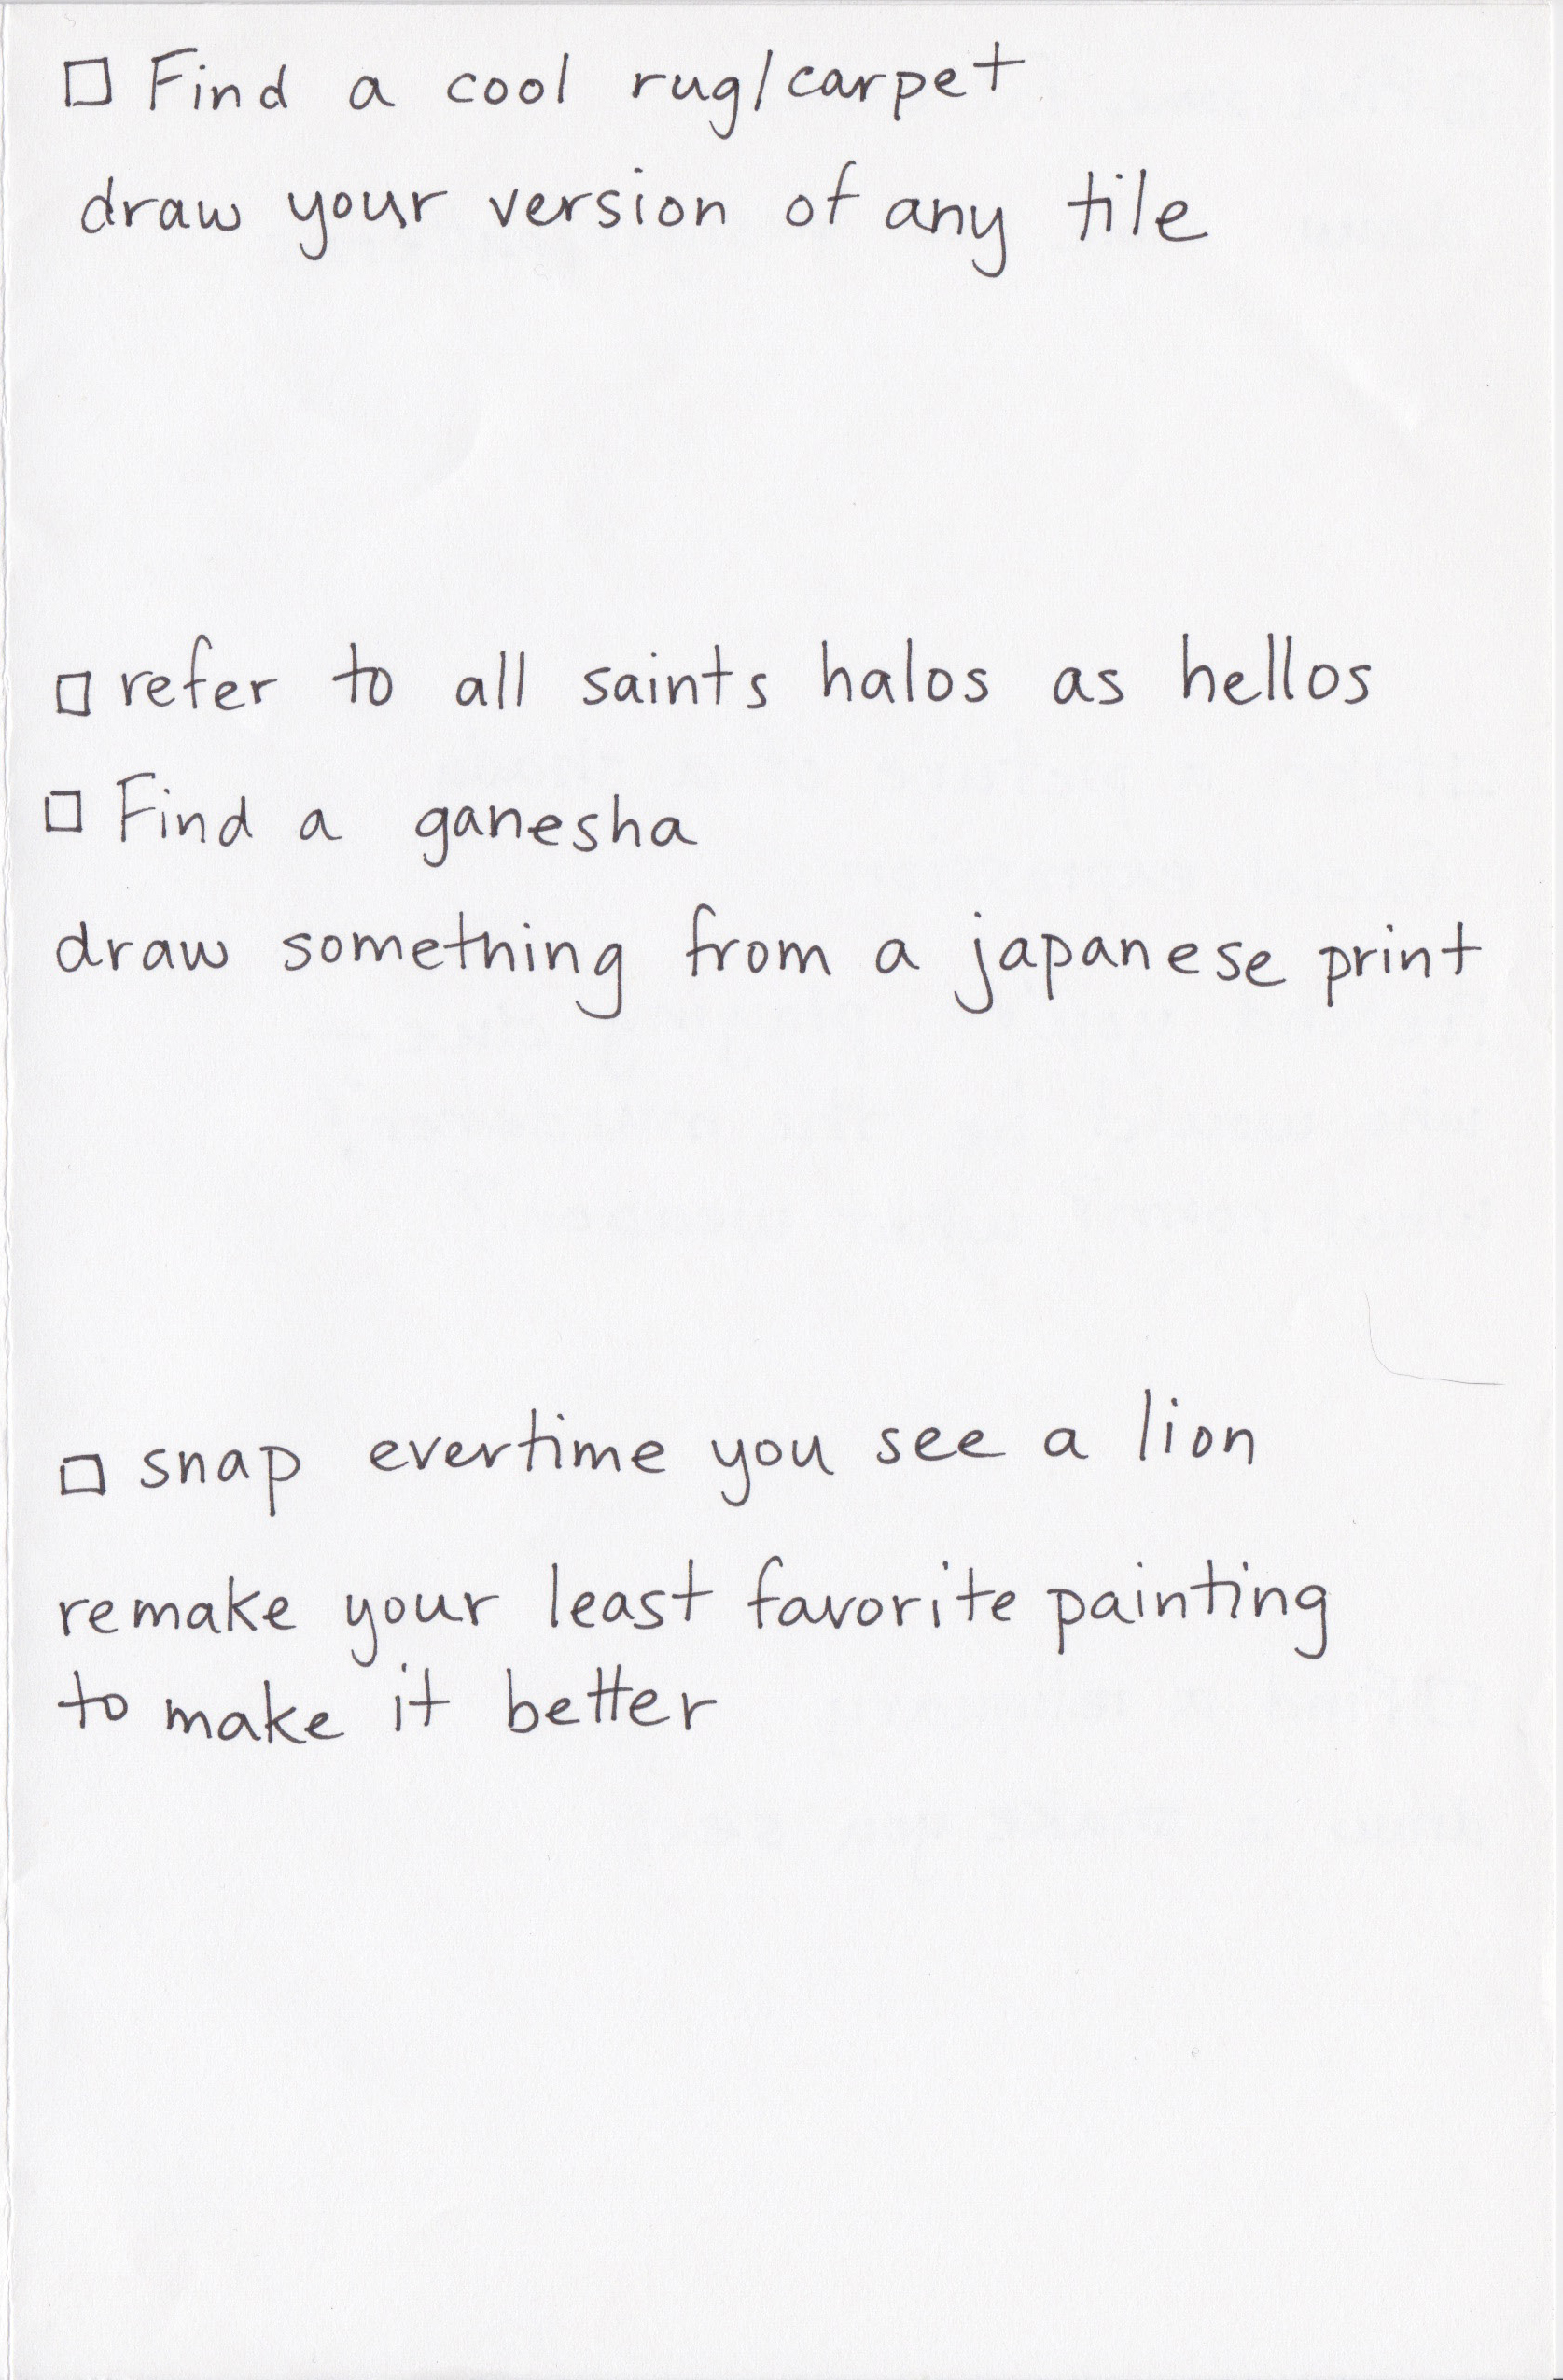 ☐ Find a cool rug/carpet
draw your version of any tile
☐ refer to all saints halos as hellos
☐ Find a ganesha
draw something from a japanese print
☐ snap evertime you see a lion
remake your least favorite painting
to make it better